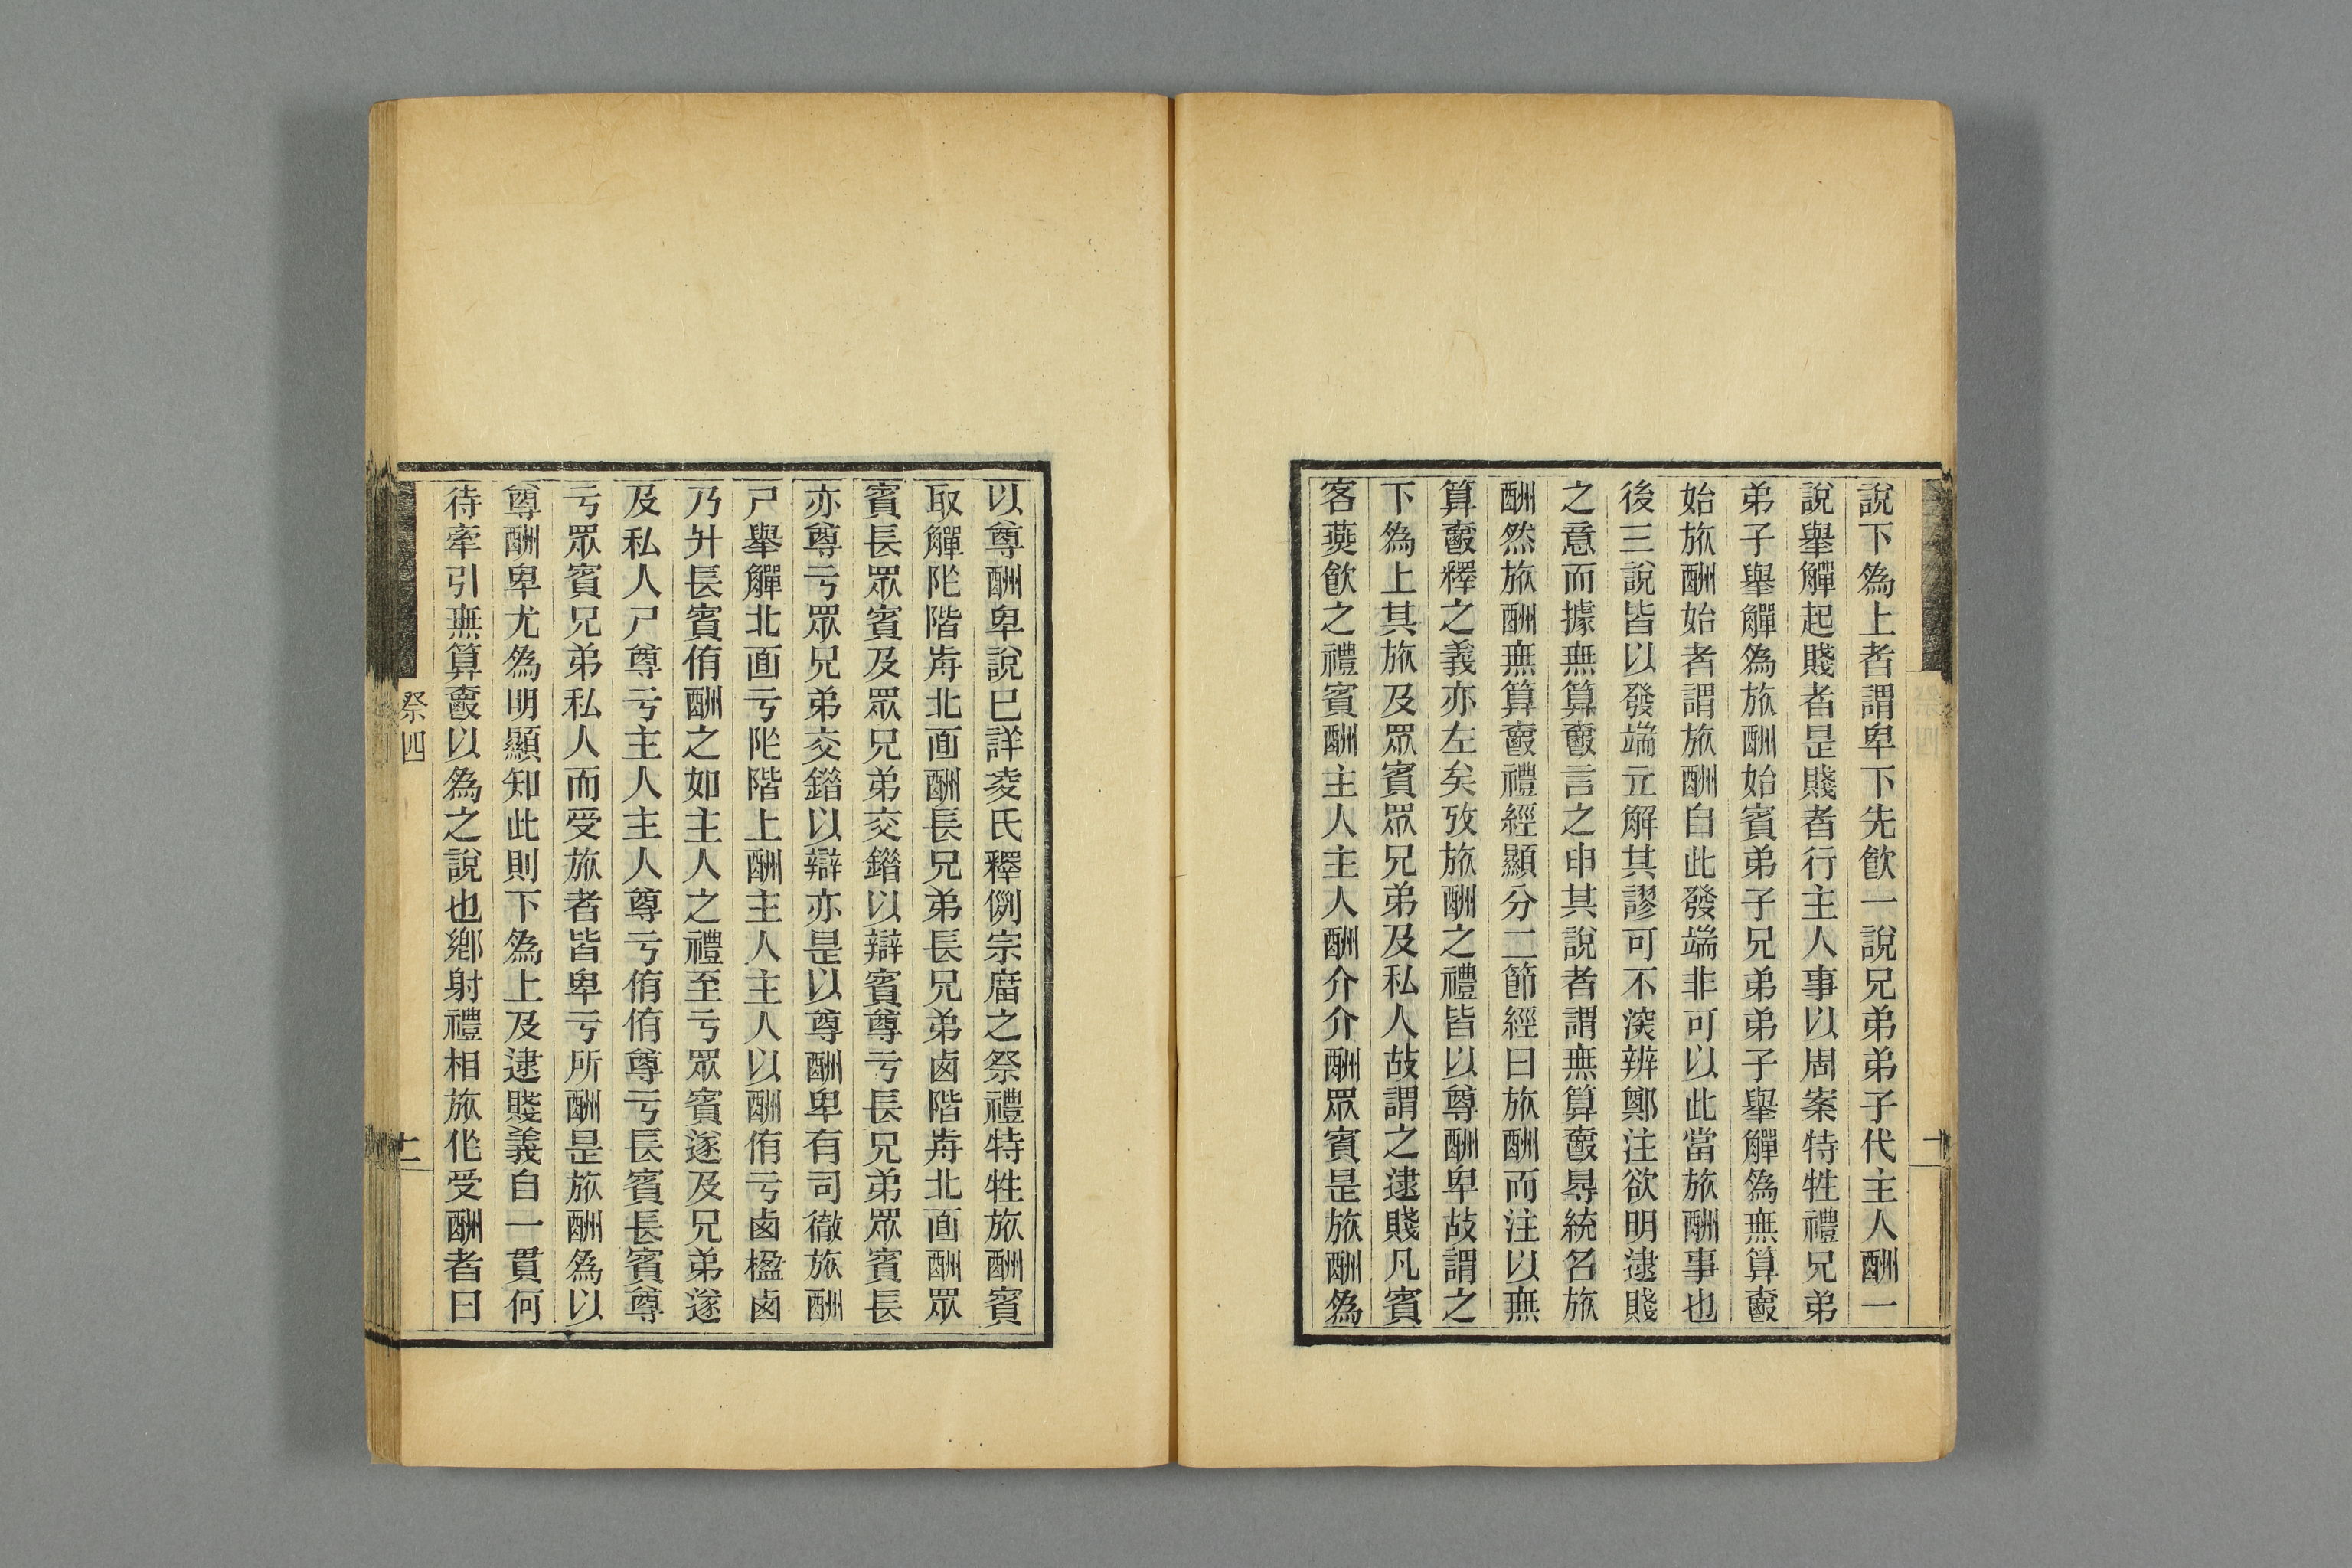 說下爲上者謂卑下先飮一說兄弟弟子代主人酬一
說舉觶起賤者是賤者行主人事以周案特牲禮兄弟
弟子舉觶爲旅酬始賓弟子兄弟弟子舉觶爲無算𤔲
始旅酬始者謂旅酬自此發端非可以此當旅酬事也
後三說皆以發端立解其謬可不㴱辨鄭注欲明逮賤
之意而據無算爵言之申其說者謂無算爵㝵統名旅
酬然旅酬無算爵禮經顯分二節經曰旅酬而注以無
算爵釋之義亦左矣攷旅酬之禮皆以尊酬卑故謂之
下爲上其旅及眾賓眾兄弟及私人故謂之逮賤凡賓
客燕飮之禮賓酬主人主人酬介介酬眾賓是旅酬爲
以尊酬卑說已詳凌氏釋例宗庿之祭禮特牲旅酬賓
取觶阼階歬北面酬長兄弟長兄弟卤階歬北面酬眾
賓長眾賓及眾兄弟交錯以辯賓尊亏長兄弟眾賓長
亦尊亏眾兄弟交錯以辯亦是以尊酬卑有司徹旅酬
尸舉觶北面亏阼階上酬主人主人以酬侑亏卤楹卤
乃升長賓侑酬之如主人之禮至亏眾賓遂及兄弟遂
及私人尸尊亏主人主人尊亏侑侑尊亏長賓長賓尊
亏眾賓兄弟私人而受旅者皆卑亏所酬是旅酬爲以
尊酬卑尤爲明顯知此則下爲上及逮賤義自一貫何
待牽引無算爵以爲之說也鄉射禮相旅作受酬者曰
祭四
十二